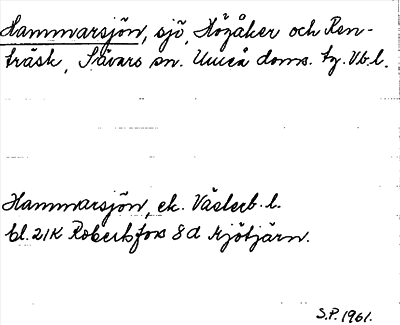 Hammarsjön, sjö, Högåker och Ren-
träsk, Sävars sn. Umeå doms. tg. Vb. l.
Hammarsjön, ek. Västerb. l.
bl. 21K Robertsfors 8d Mjötjärn.
S.P. 1961.